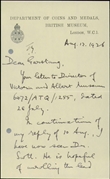 DEPARTMENT OF COINS AND MEDALS,
BRITISH MUSEUM,
London, W.C.1
Aug. 13. 1926
Dear
Your letter to Director
of Victoria and Albert Museum
dated
26 July
In continuation of
my reply of 10 Aug., I
have now seen Dr.
Scott. He is hopeful
of the